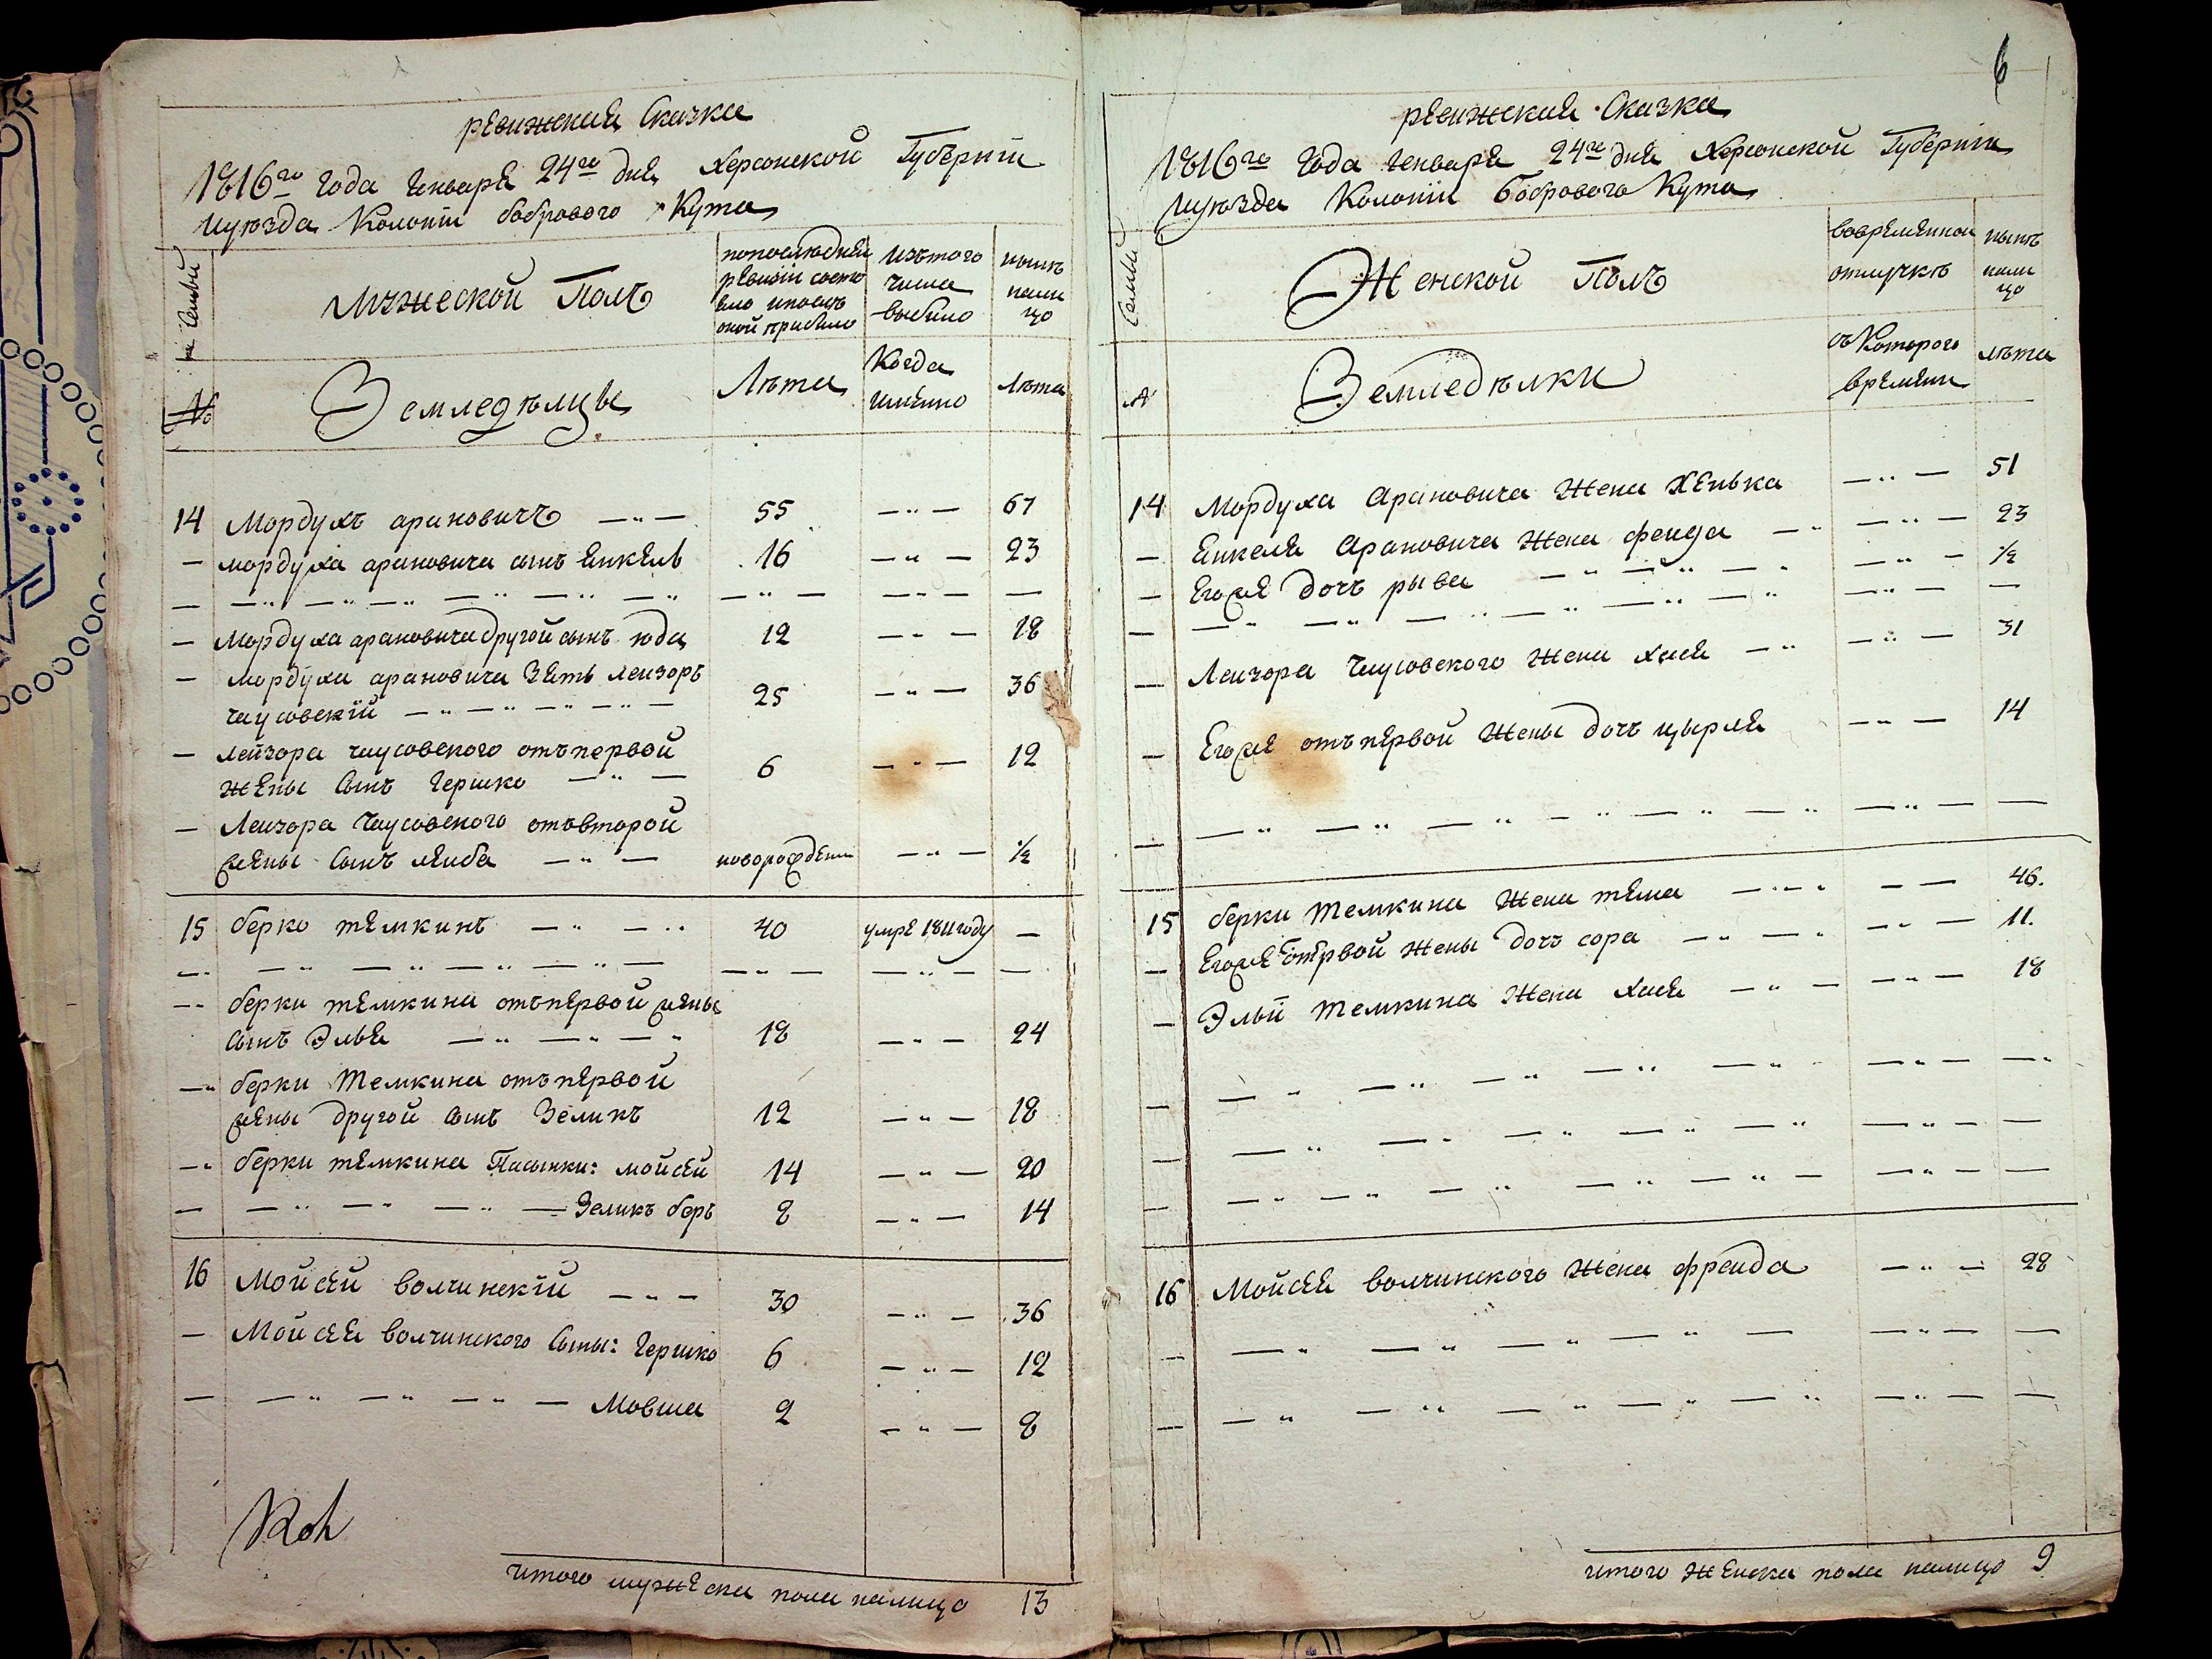 ревижская Сказка
1816го года Генваря 24го дня Херсонской Губернїи
иуюзда Колонїи боброваго Кута
Семьи
мужеской Полъ
попоследней
ревизїи состо
яло ипослѣ
оной прибыло
изътого
числа
выбыло
нынѣ
нали
цо
№
Земледѣлцы
Лѣта
Когда
имянно
лѣта
14 Мордухъ арановичъ — „ — 55 — „ — 67
— мордуха арановича сынъ Янкель 16 — „ — 23
— мордуха арановича другой сынъ юда 12 — „ — 18
— мордуха арановича Зять леизоръ
чаусовскїй 25 — „ — 36
— лейзора чаусовского отъпервой
жены Сынъ Гершко — „ — 6 — „ — 12
— Леизора чаусовского отъвторой
жены Сынъ лейба — „ — новорожденн — „ — ½
15 берко темкинъ — „ — 40 умре 1811году —
— берки темкина отъпервой жены
Сынъ Элья 18 — „ — 24
— берки темкина отъпервой
жены другой Сынъ Зеликъ 12 — „ — 18
— берки темкина Пасынки: мойсей 14 — „ — 20
— Зеликъ беръ 8 — „ — 14
16 Мойсей волчинскїй — „ — 30 — „ — 36
— Мойсея волчинского Сыны: Гершко 6 — „ — 12
— Мовша 2 — „ — 8
итого мужеска пола налицо 13
6
ревижская Сказка
1816го года Генваря 24го дня Херсонской Губернїи
иуюзда Колонїи Боброваго Кута
Семьи
Женской Полъ
вовременной
отлучкѣ
нынѣ
нали
цо
№
Земледѣлки
съ Которого
времени
лѣта
14 Мордуха Арановича Жена Хенька — „ — 51
— Янкеля Арановича Жена феида — „ — 23
— Егоже дочъ рыва — „ — ½
— Леизора Чаусовского Жена хася — „ — 31
— Егоже отъпервой Жены дочъ цырля — „ — 14
15 берки Темкина Жена тема — — 46.
— Егоже отпрвой Жены дочъ сора — „ — 11.
— Эльи Темкина Жена хася — „ — 18
16 Мойсея волчинского Жена фреида — „ — 28
итого Женска пола налицо 9